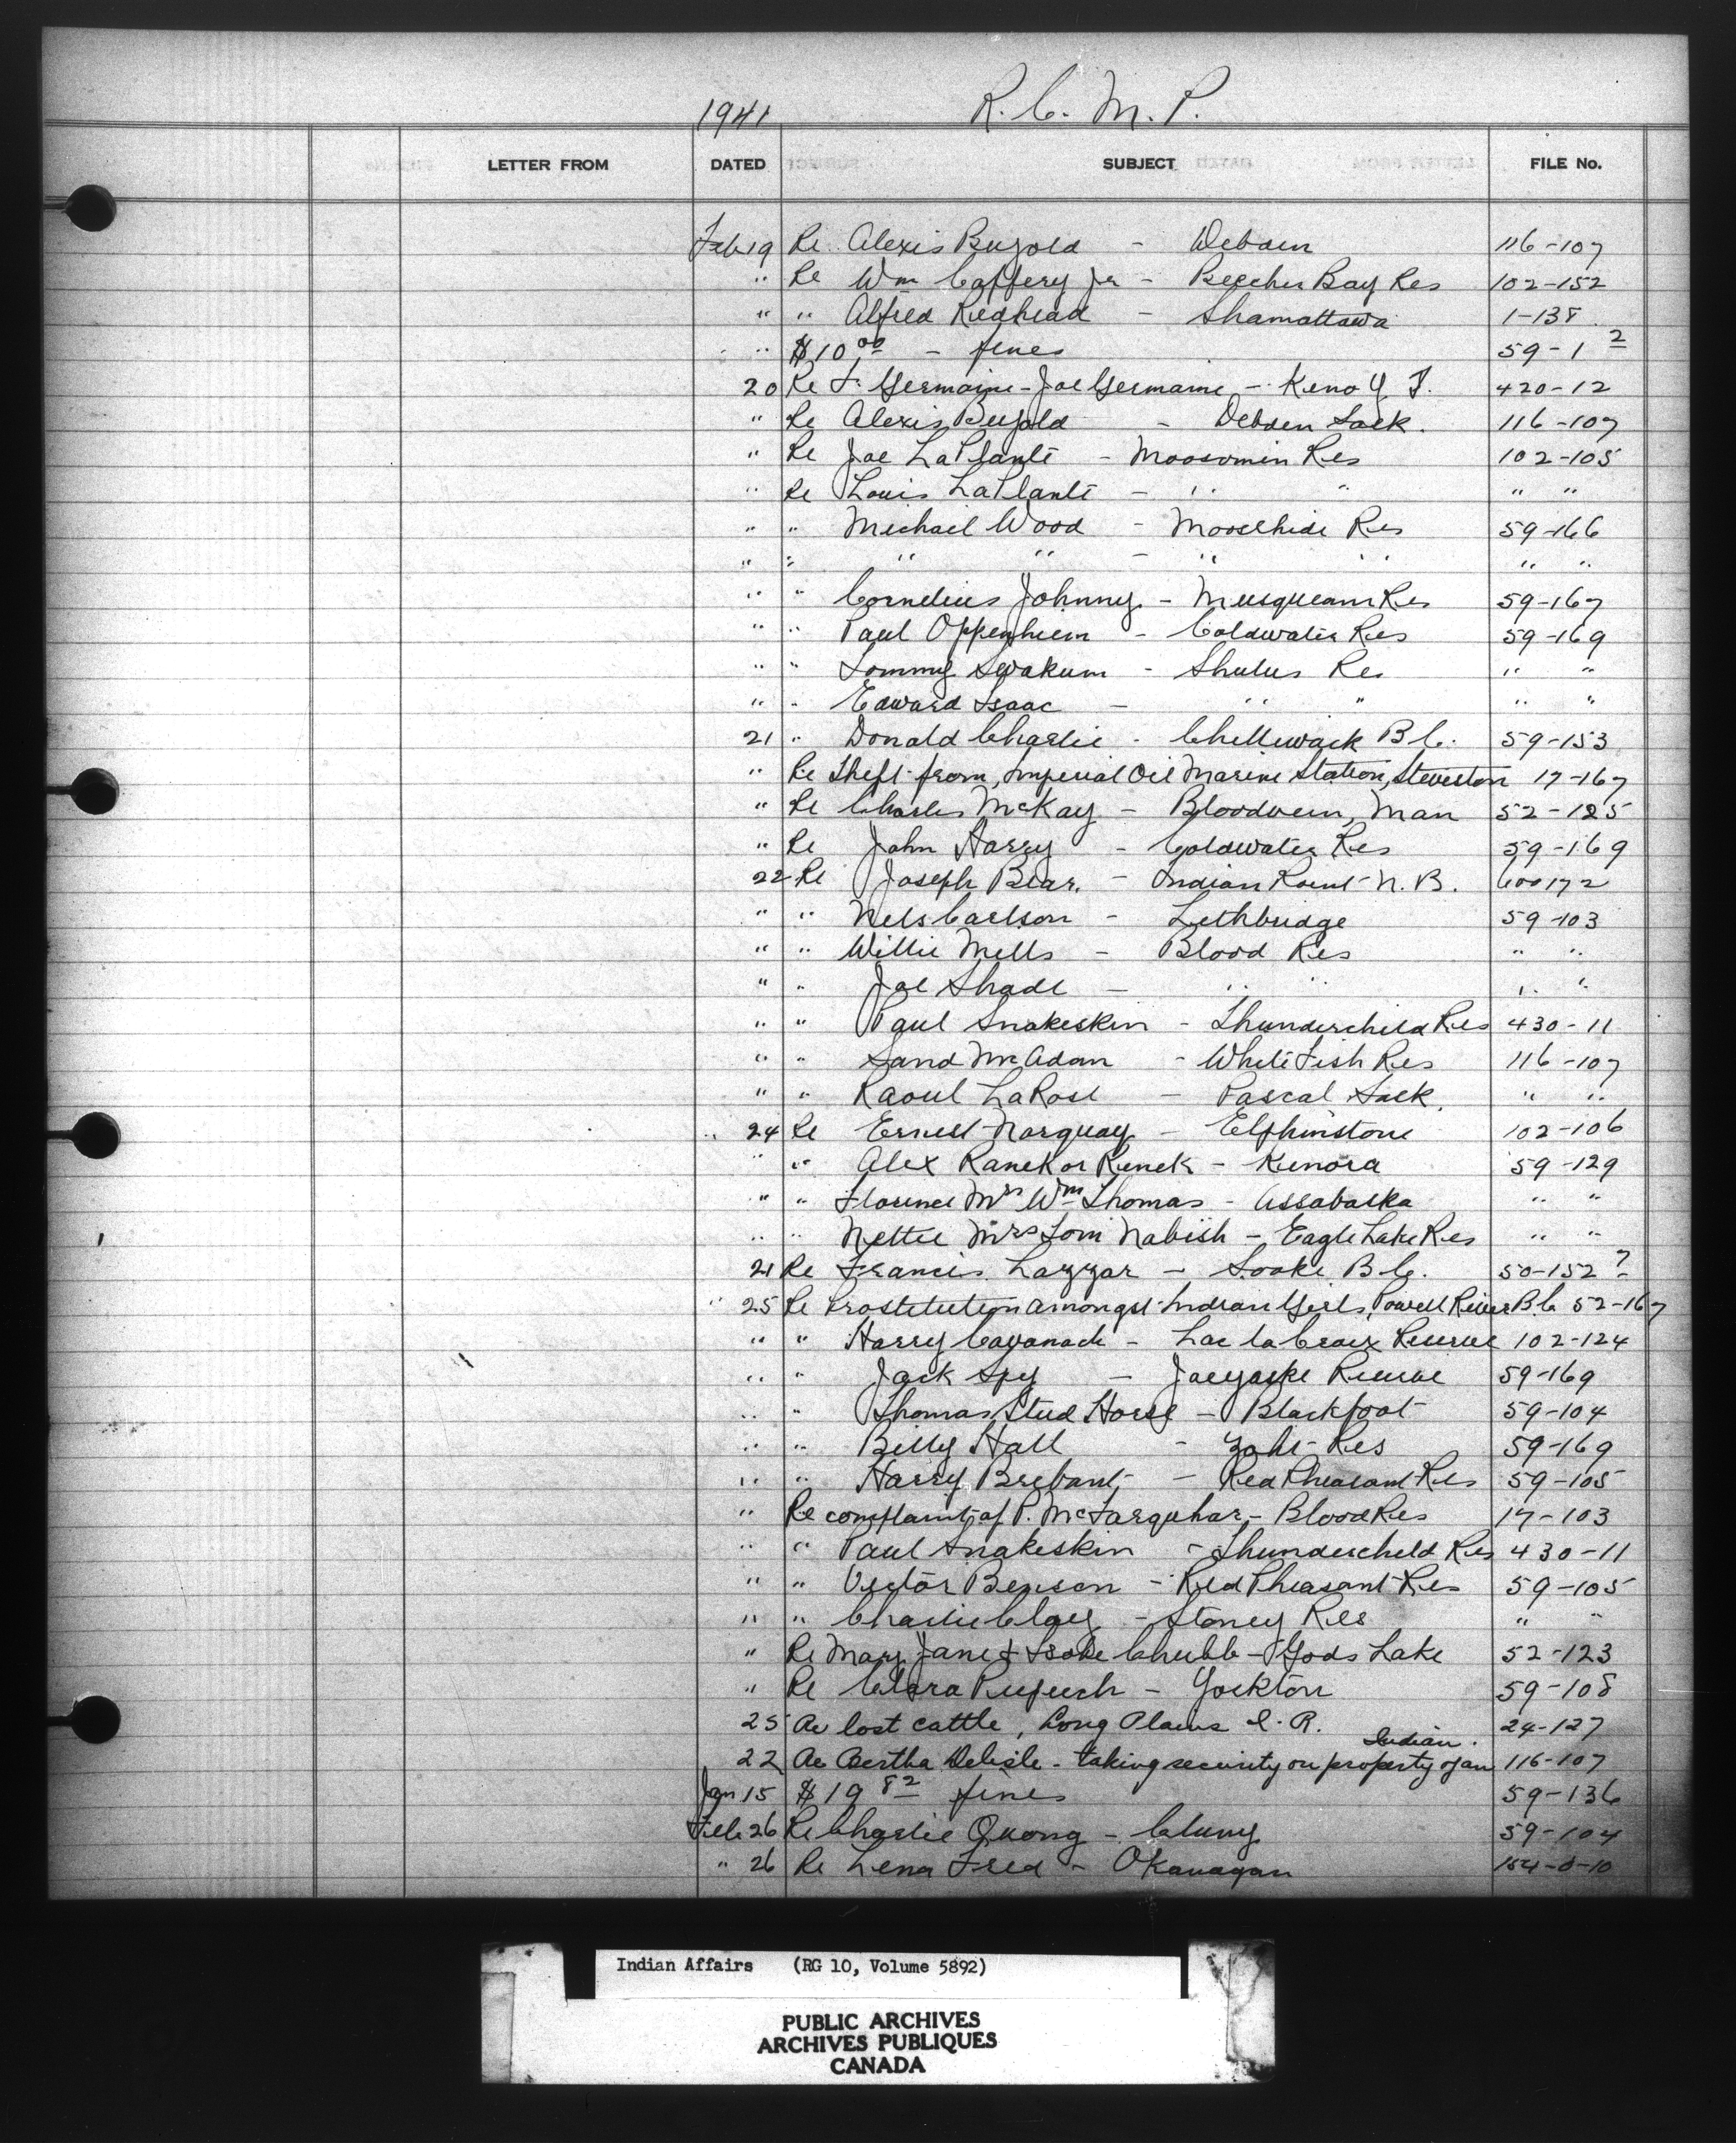 1941 R.C.M.P.
LETTER FROM DATED SUBJECT FILE No.
Feb 19 Re Alexis Bujold - Debden 116-107
" Re Wm Caffery Jr - Beecher Bay Res 102-152
" " Alfred Redhead - Shamattawa 1-138
" $10 00 - fines 59-1 2
20 Re F. Germaine - Joe Germaine - Keno Y.T. 420-12
" Re Alexis Bujold - Debden Sask. 116-107
" Re Joe LaPlante - Moosomin Res 102-105
" Re Louis LaPlante - " " " "
" " Michael Wood - Moosehide Res 59-166
" " " " - " " " "
" " Cornelius Johnny - Musqueam Res 59-167
" " Paul Oppenheim - Coldwater Res 59-169
" " Tommy Swakum - Shulus Res " "
" " Edward Isaac - " " " "
21 " Donald Charlie - Chilliwack B.C. 59-153
" Re Theft from Imperial Oil Marine Station, Steveston 17-167
" Re Charles McKay - Bloodvein, Man 52-125
" Re John Harry - Coldwater Res 59-169
22 Re Joseph Bear. - Indian Point N.B. 600172
" " Nels Carlson - Lethbridge 59-103
" " Willie Mills - Blood Res " "
" " Joe Shade - " " " "
" " Paul Snakeskin - Thunderchild Res 430-11
" " Sand McAdam - White Fish Res 116-107
" " Raoul LaRose - Pascal Sask. " "
" 24 Re Ernest Norquay - Elphinstone 102-106
" " Alex Ranek or Renek - Kenora 59-129
" " Florence Mrs Wm Thomas - Assabaska " "
" " Nettie Mrs Tom Nabish - Eagle Lake Res " "
21 Re Francis Lazzar - Sooke B.C. 50-152 ?
" 25 Re Prostitution amongst Indian Girls, Powell River B.C. 52-167
" " Harry Cavanach - Lac la Croix Reserve 102-124
" " Jack Spy - Reserve 59-169
" " Thomas Stud Horse - Blackfoot 59-104
" " Billy Hall - Yale Res 59-169
" " Harry Brebant - Red Pheasant Res 59-105
" Re complaint of P. McFarquhar - Blood Res 17-103
" " Paul Snakeskin - Thunderchild Res 430-11
" " Victor Benson - Red Pheasant Res 59-105
" " Charlie Clay - Stoney Res " "
" Re Mary Jane & Chubb - Gods Lake 52-123
" Re Clara - Yorkton 59-108
25 Re lost cattle, Long Plains I.R. 24-127
22 Re Bertha Delisle - taking security on property of an Indian. 116-107
Jan 15 $19 82 fines 59-136
Feb 26 Re Charlie Quong - Cluny 59-104
" 26 Re Lena Fred - Okanagan 154-0-10
Indian Affairs (RG 10, Volume 5892)
PUBLIC ARCHIVES
ARCHIVES PUBLIQUES
CANADA